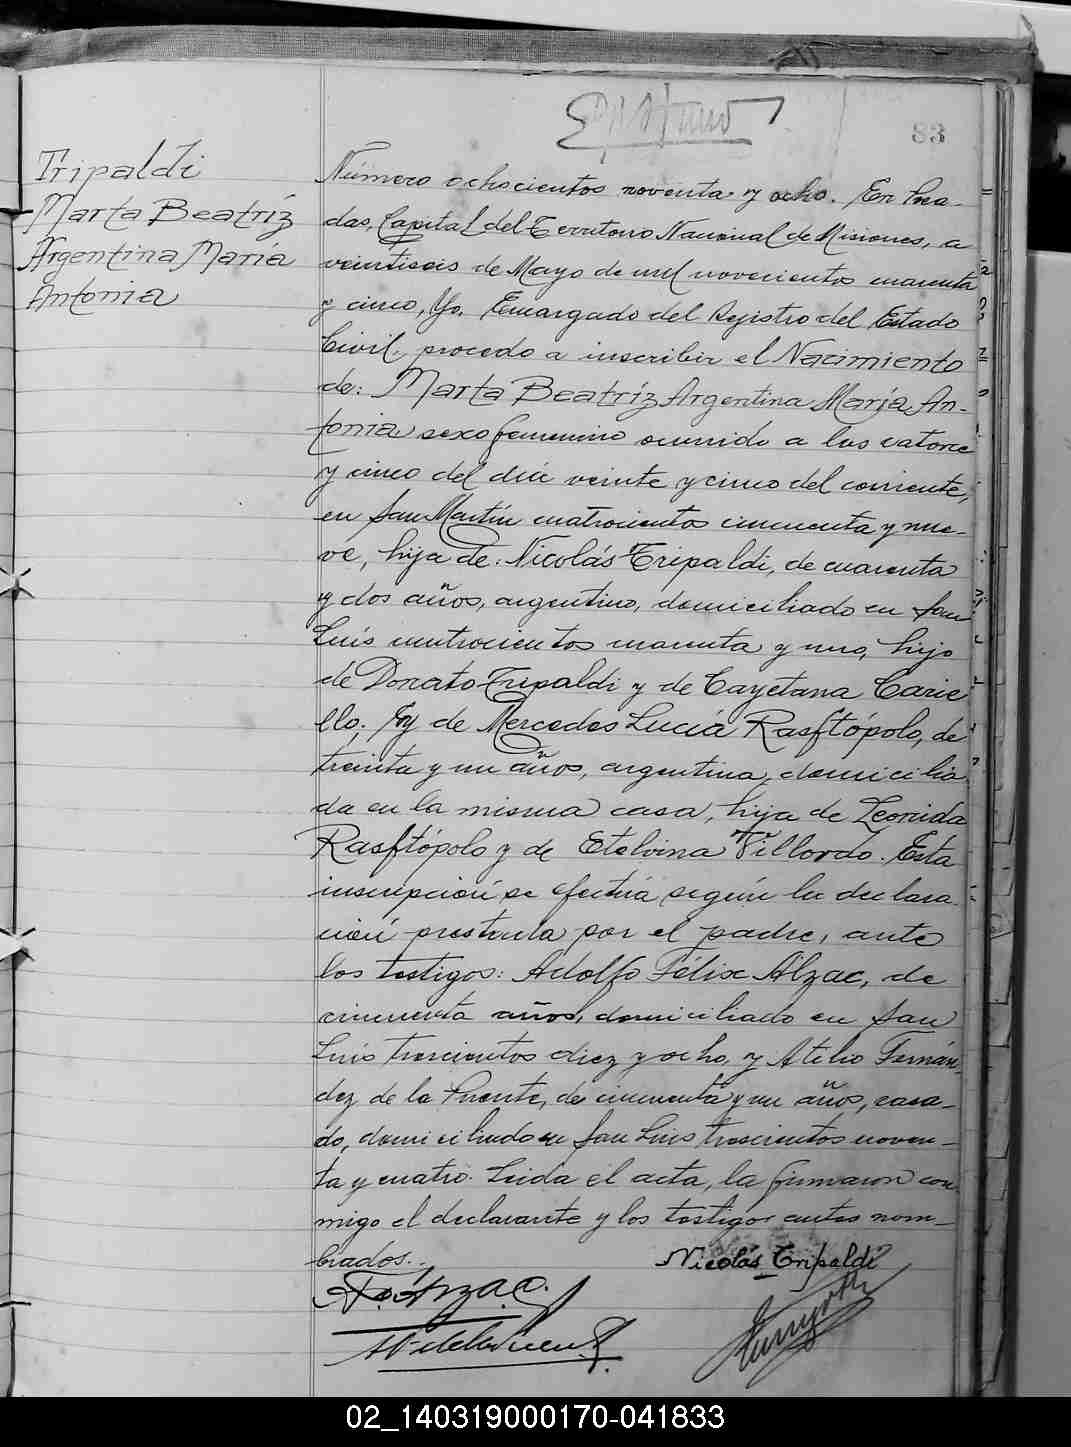 83
Tripaldi
Marta Beatríz
Argentina María
Antonia
Número ochocientos noventa y ocho. En Posa-
das, Capital del Territorio Nacional de Misiones, a
veintiseis de Mayo de mil novecientos cuarenta
y cinco, Yo, Encargado del Registro del Estado
Civil, procedo a inscribir el Nacimiento
de: Marta Beatríz Argentina María An-
tonia sexo femenino ocurrido a las catorce
y cinco del día veinte y cinco del corriente,
en San Martín cuatrocientos cincuenta y nue-
ve, hija de: Nicolás Tripaldi, de cuarenta
y dos años, argentino, domiciliado en San
Luis cuatrocientos cuarenta y uno, hijo
de Donato Tripaldi y de Cayetana Carie
llo. Y de Mercedes Lucía Rasftópolo, de
treinta y un años, argentina, domicilia
da en la misma casa, hija de Leonida
Rasftópolo y de Etelvina Villordo. Esta
inscripción se efectúa según la declara
ción prestada por el padre, ante
los testigos: Adolfo Félix Alzac, de
cincuenta años, domiciliado en San
Luis trescientos diez y ocho, y Atilio Fernán-
dez de la Puente, de cincuenta y un años, casa-
do, domiciliado en San Luis trescientos noven-
ta y cuatro. Leida el acta, la firmaron con
migo el declarante y los testigos antes nom-
brados.
Nicolás Tripaldi
02_140319000170-041833